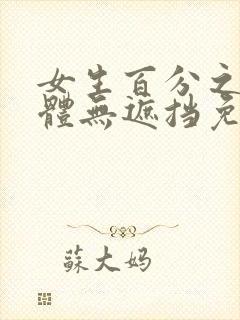 女生百分之
體無遮挡免
蘇大妈